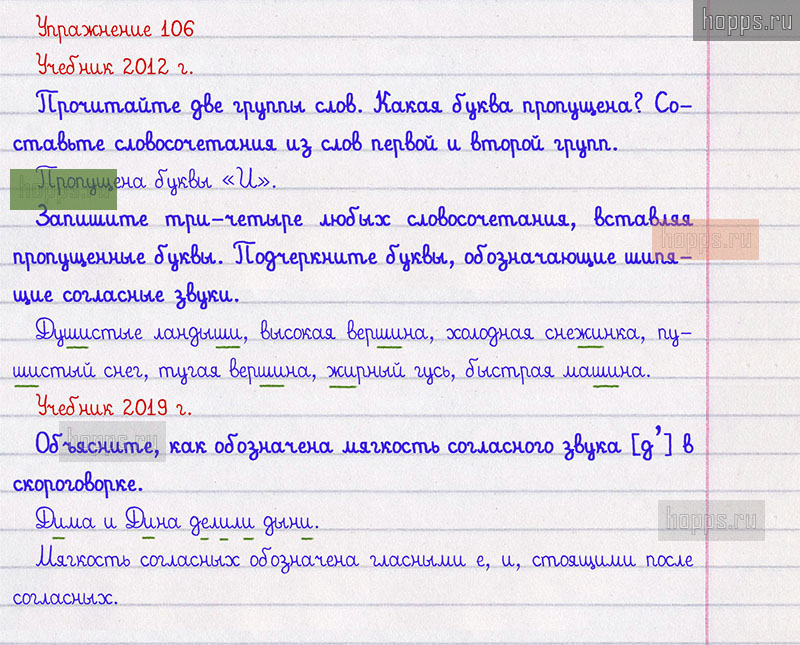 hopps.ru
Упражнение 106
Учебник 2012 г.
Прочитайте две группы слов. Какая буква пропущена? Со-
ставьте словосочетания из слов первой и второй групп.
Пропущена буквы «И».
hopps.ru
Запишите три-четыре любых словосочетания, вставляя
hopps.ru
пропущенные буквы. Подчеркните буквы, обозначающие шипя-
щие согласные звуки.
Душистые ландыши, высокая вершина, холодная снежинка, пу-
шистый снег, тугая вершина, жирный гусь, быстрая машина.
Учебник 2019 г.
hopps.ru
Объясните, как обозначена мягкость согласного звука [д’] в
скороговорке.
Дима и Дина делили дыни.
hopps.ru
Мягкость согласных обозначена гласными е, и, стоящими после
согласных.